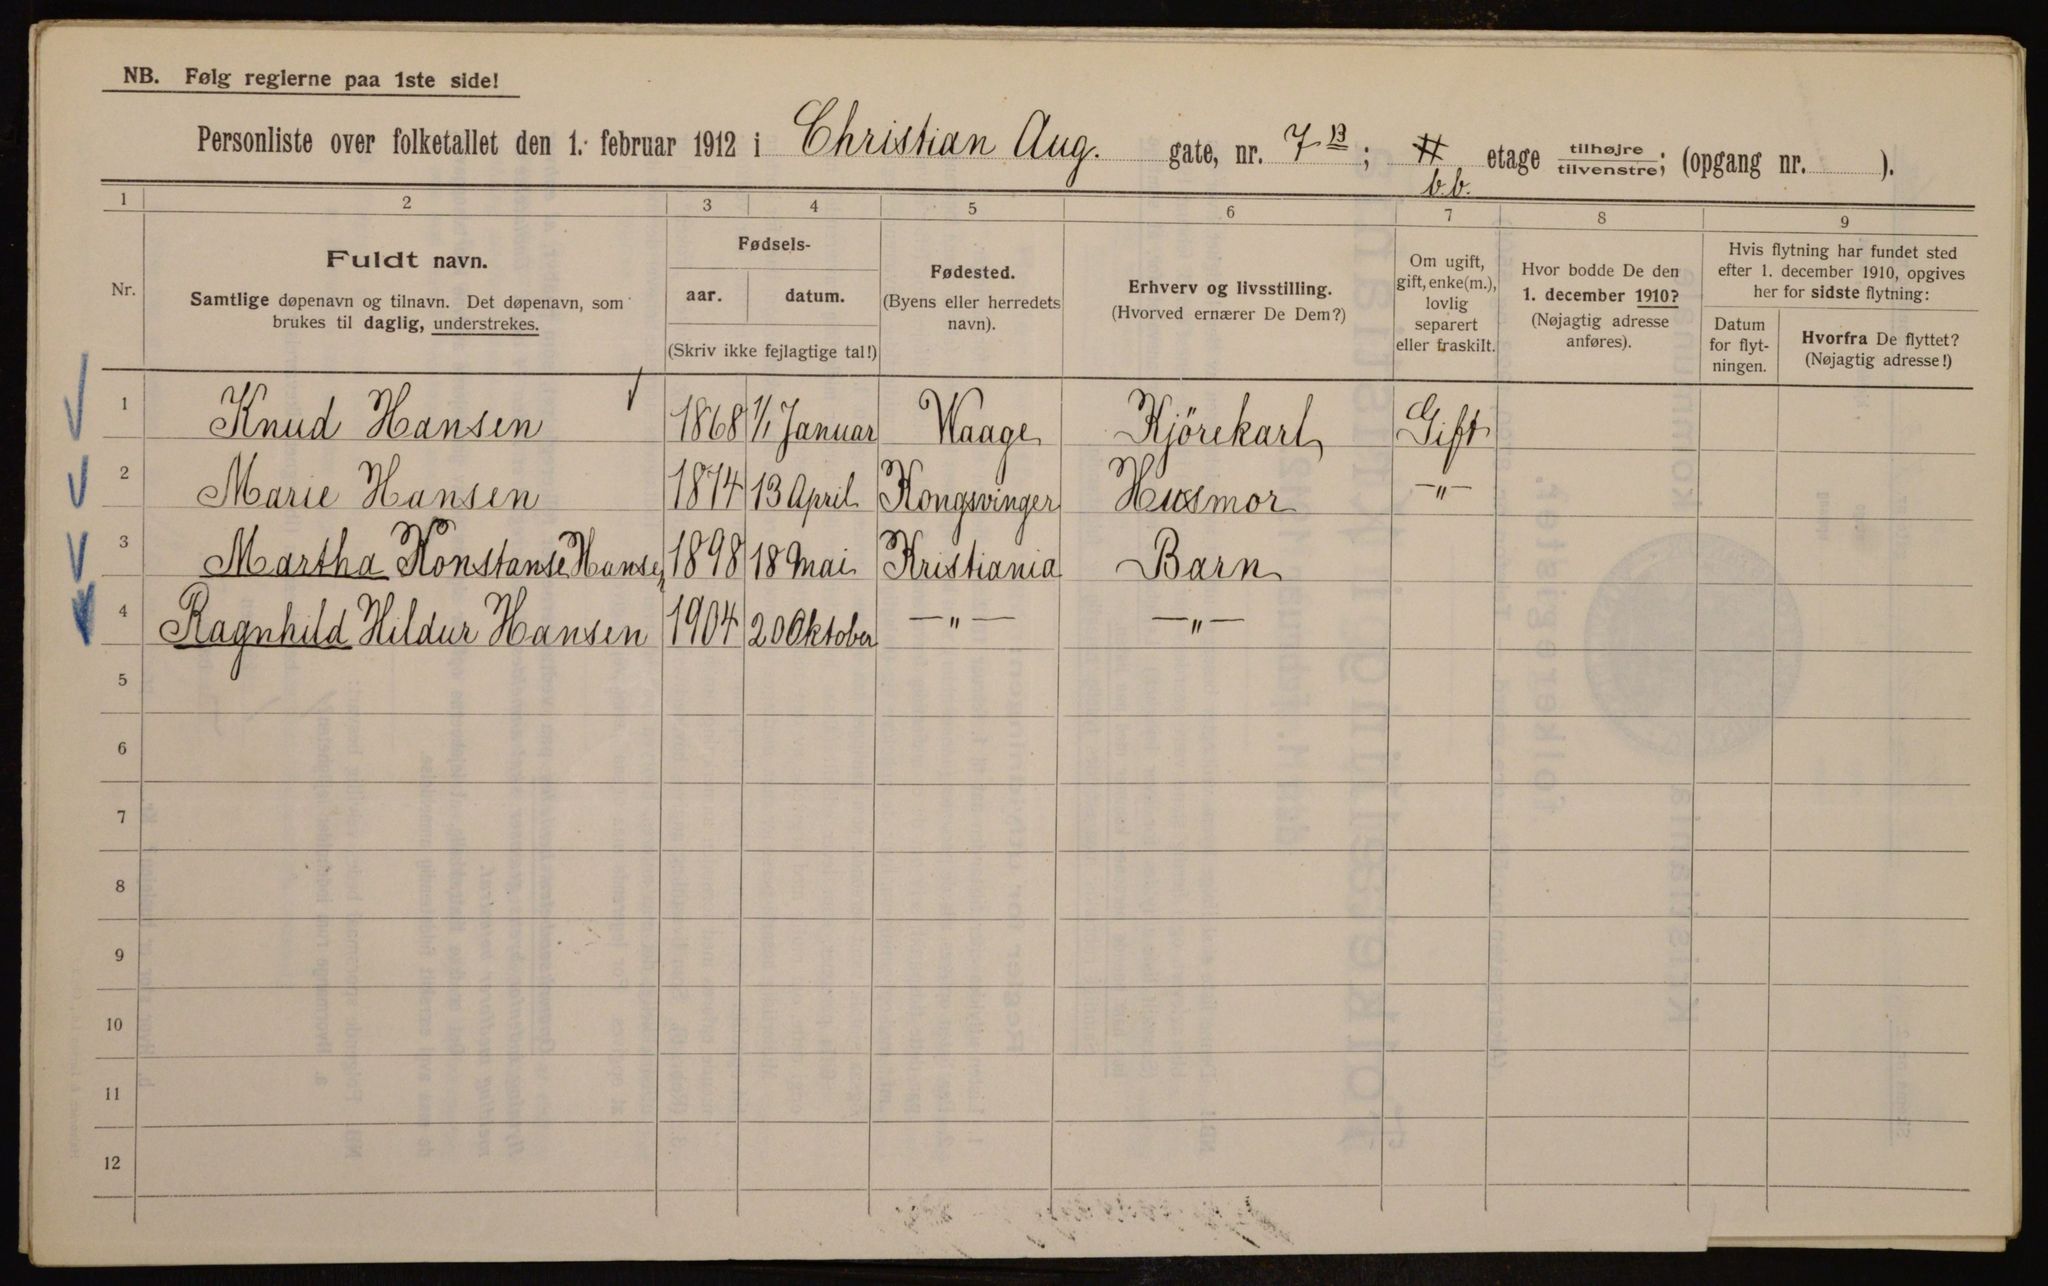 NB. Følg reglerne paa 1ste side!
Personliste over folketallet den 1. februar 1912 i Christian Aug. gate, nr. 7 B; # etage tilhøjre tilvenstre; (opgang nr. ).
b.b.
1 2 3 4 5 6 7 8 9
Nr.
Fuldt navn.
Samtlige døpenavn og tilnavn. Det døpenavn, som
brukes til daglig, understrekes.
Fødsels-
aar. datum.
(Skriv ikke fejlagtige tal!)
Fødested.
(Byens eller herredets
navn).
Erhverv og livsstilling.
(Hvorved ernærer De Dem?)
Om ugift,
gift, enke(m.),
lovlig
separert
eller fraskilt.
Hvor bodde De den
1. december 1910?
(Nøjagtig adresse
anføres).
Hvis flytning har fundet sted
efter 1. december 1910, opgives
her for sidste flytning:
Datum
for flyt-
ningen.
Hvorfra De flyttet?
(Nøjagtig adresse!)
1 Knud Hansen 1868 1/1 Januar Waage Kjörekarl Gift
2 Marie Hansen 1874 13 April Kongsvinger Husmor —"—
3 Martha Konstanse Hansen 1898 18 Mai Kristiania Barn
4 Ragnhild Hildur Hansen 1904 20 Oktober —"— —"—
5
6
7
8
9
10
11
12